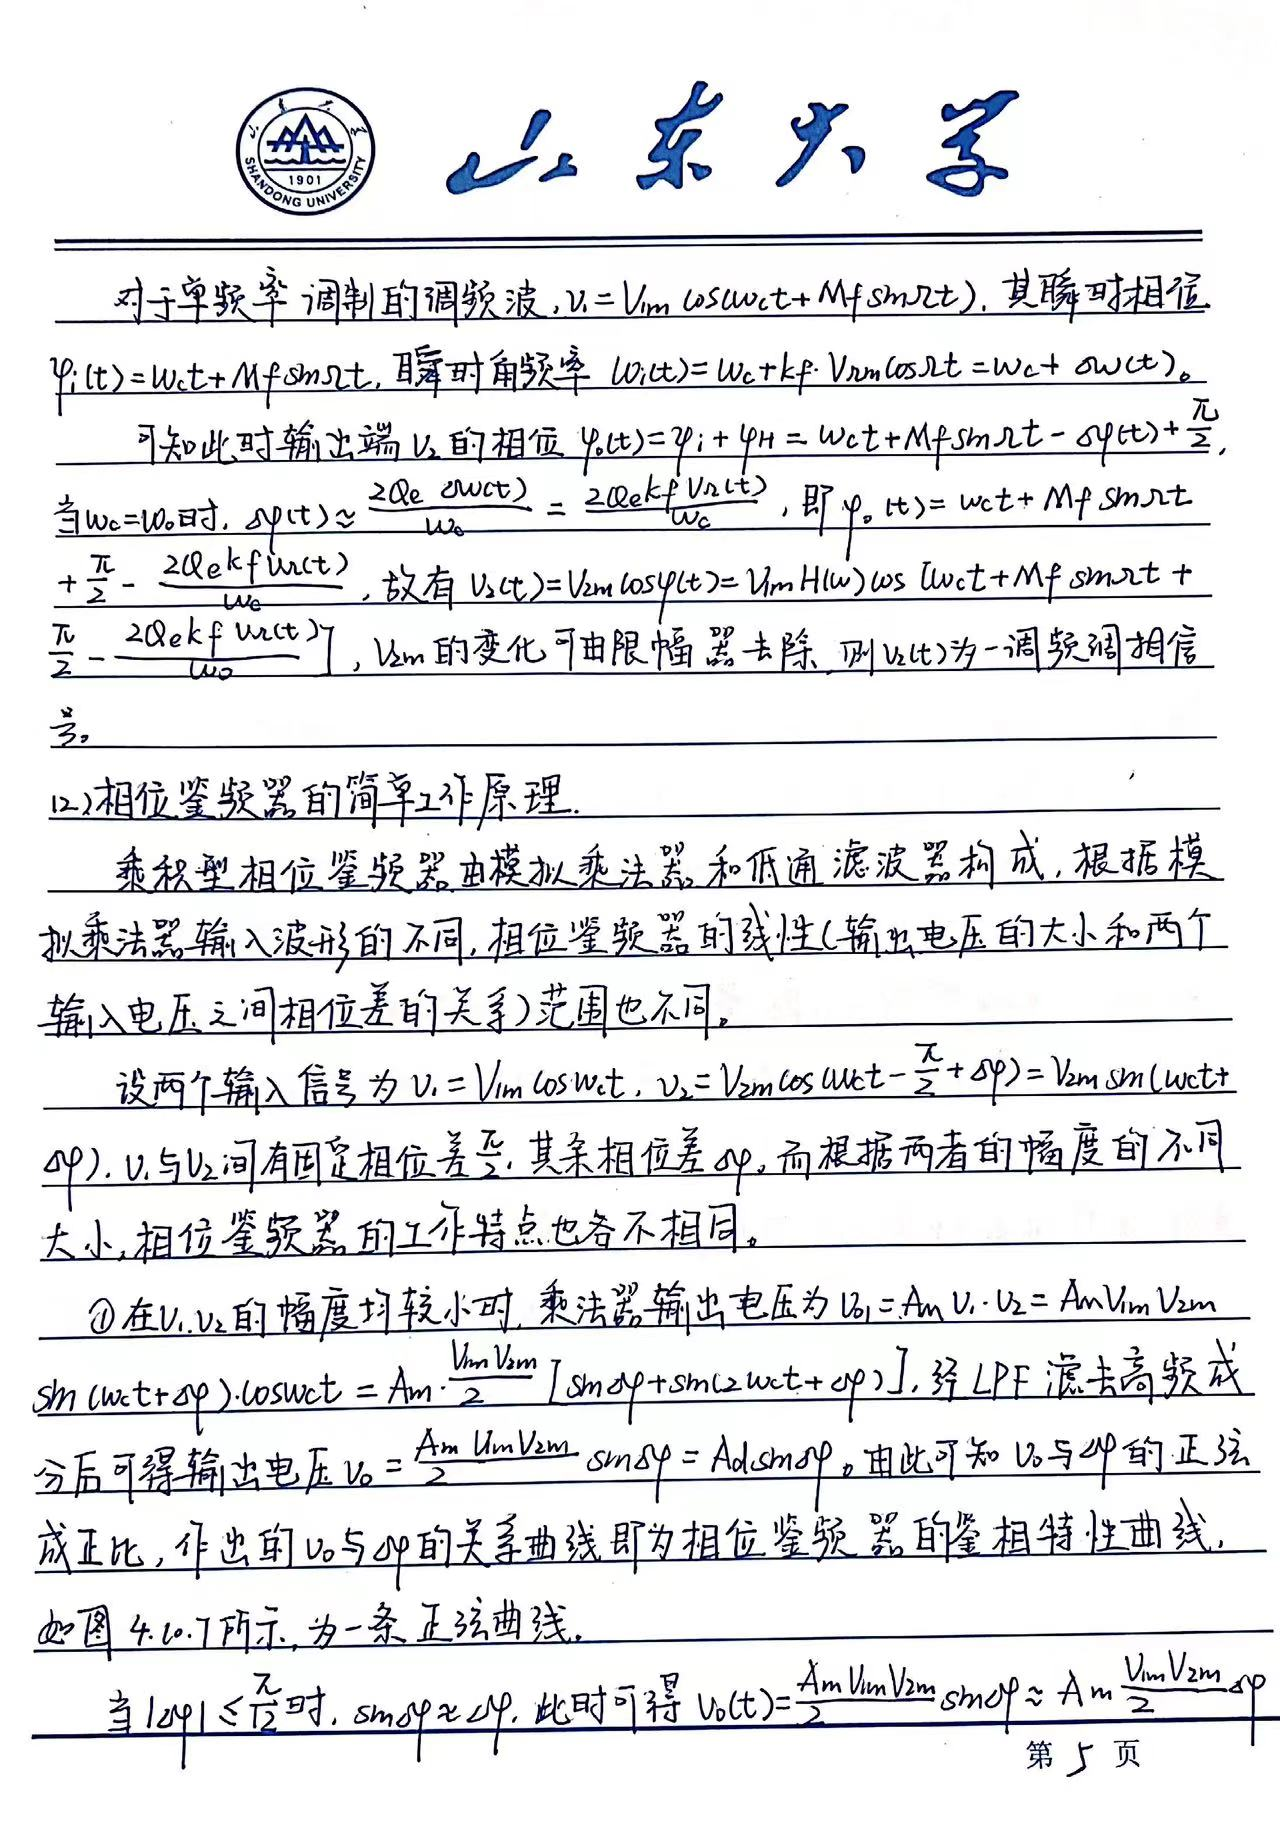 山东大学
SHANDONG UNIVERSITY
1901
对于单频率调制的调频波,v₁=V₁m cos(ωct+Mf sinΩt),其瞬时相位
φi(t)=ωct+Mf sinΩt,瞬时角频率 ωi(t)=ωc+kf·VΩm cosΩt=ωc+Δω(t)。
可知此时输出端v₂的相位 φo(t)=φi+φH=ωct+Mf sinΩt-Δφ(t)+π/2,
当ωc=ω₀时,Δφ(t)≈2QeΔω(t)/ω₀=2QekfVΩ(t)/ωc,即φo(t)=ωct+Mf sinΩt
+π/2-2QekfuΩ(t)/ωc,故有 v₂(t)=V₂m cosφ(t)=V₁mH(ω)cos[ωct+Mf sinΩt+
π/2-2QekfuΩ(t)/ω₀],V₂m的变化可由限幅器去除,则v₂(t)为一调频调相信
号。
(2)相位鉴频器的简单工作原理.
乘积型相位鉴频器由模拟乘法器和低通滤波器构成,根据模
拟乘法器输入波形的不同,相位鉴频器的线性(输出电压的大小和两个
输入电压之间相位差的关系)范围也不同。
设两个输入信号为 v₁=V₁m cosωct,v₂=V₂m cos(ωct-π/2+Δφ)=V₂m sin(ωct+
Δφ).v₁与v₂间有固定相位差π/2,其余相位差Δφ,而根据两者的幅度的不同
大小,相位鉴频器的工作特点也各不相同。
①在v₁、v₂的幅度均较小时,乘法器输出电压为 vo₁=Am v₁·v₂=AmV₁mV₂m
sin(ωct+Δφ)·cosωct=Am·V₁mV₂m/2[sinΔφ+sin(2ωct+Δφ)],经LPF滤去高频成
分后可得输出电压v₀=AmV₁mV₂m/2 sinΔφ=Ad sinΔφ。由此可知v₀与Δφ的正弦
成正比,作出的v₀与Δφ的关系曲线即为相位鉴频器的鉴相特性曲线,
如图4.10.7所示,为一条正弦曲线。
当|Δφ|≤π/12时,sinΔφ≈Δφ,此时可得 v₀(t)=AmV₁mV₂m/2 sinΔφ≈Am V₁mV₂m/2 Δφ
第5页